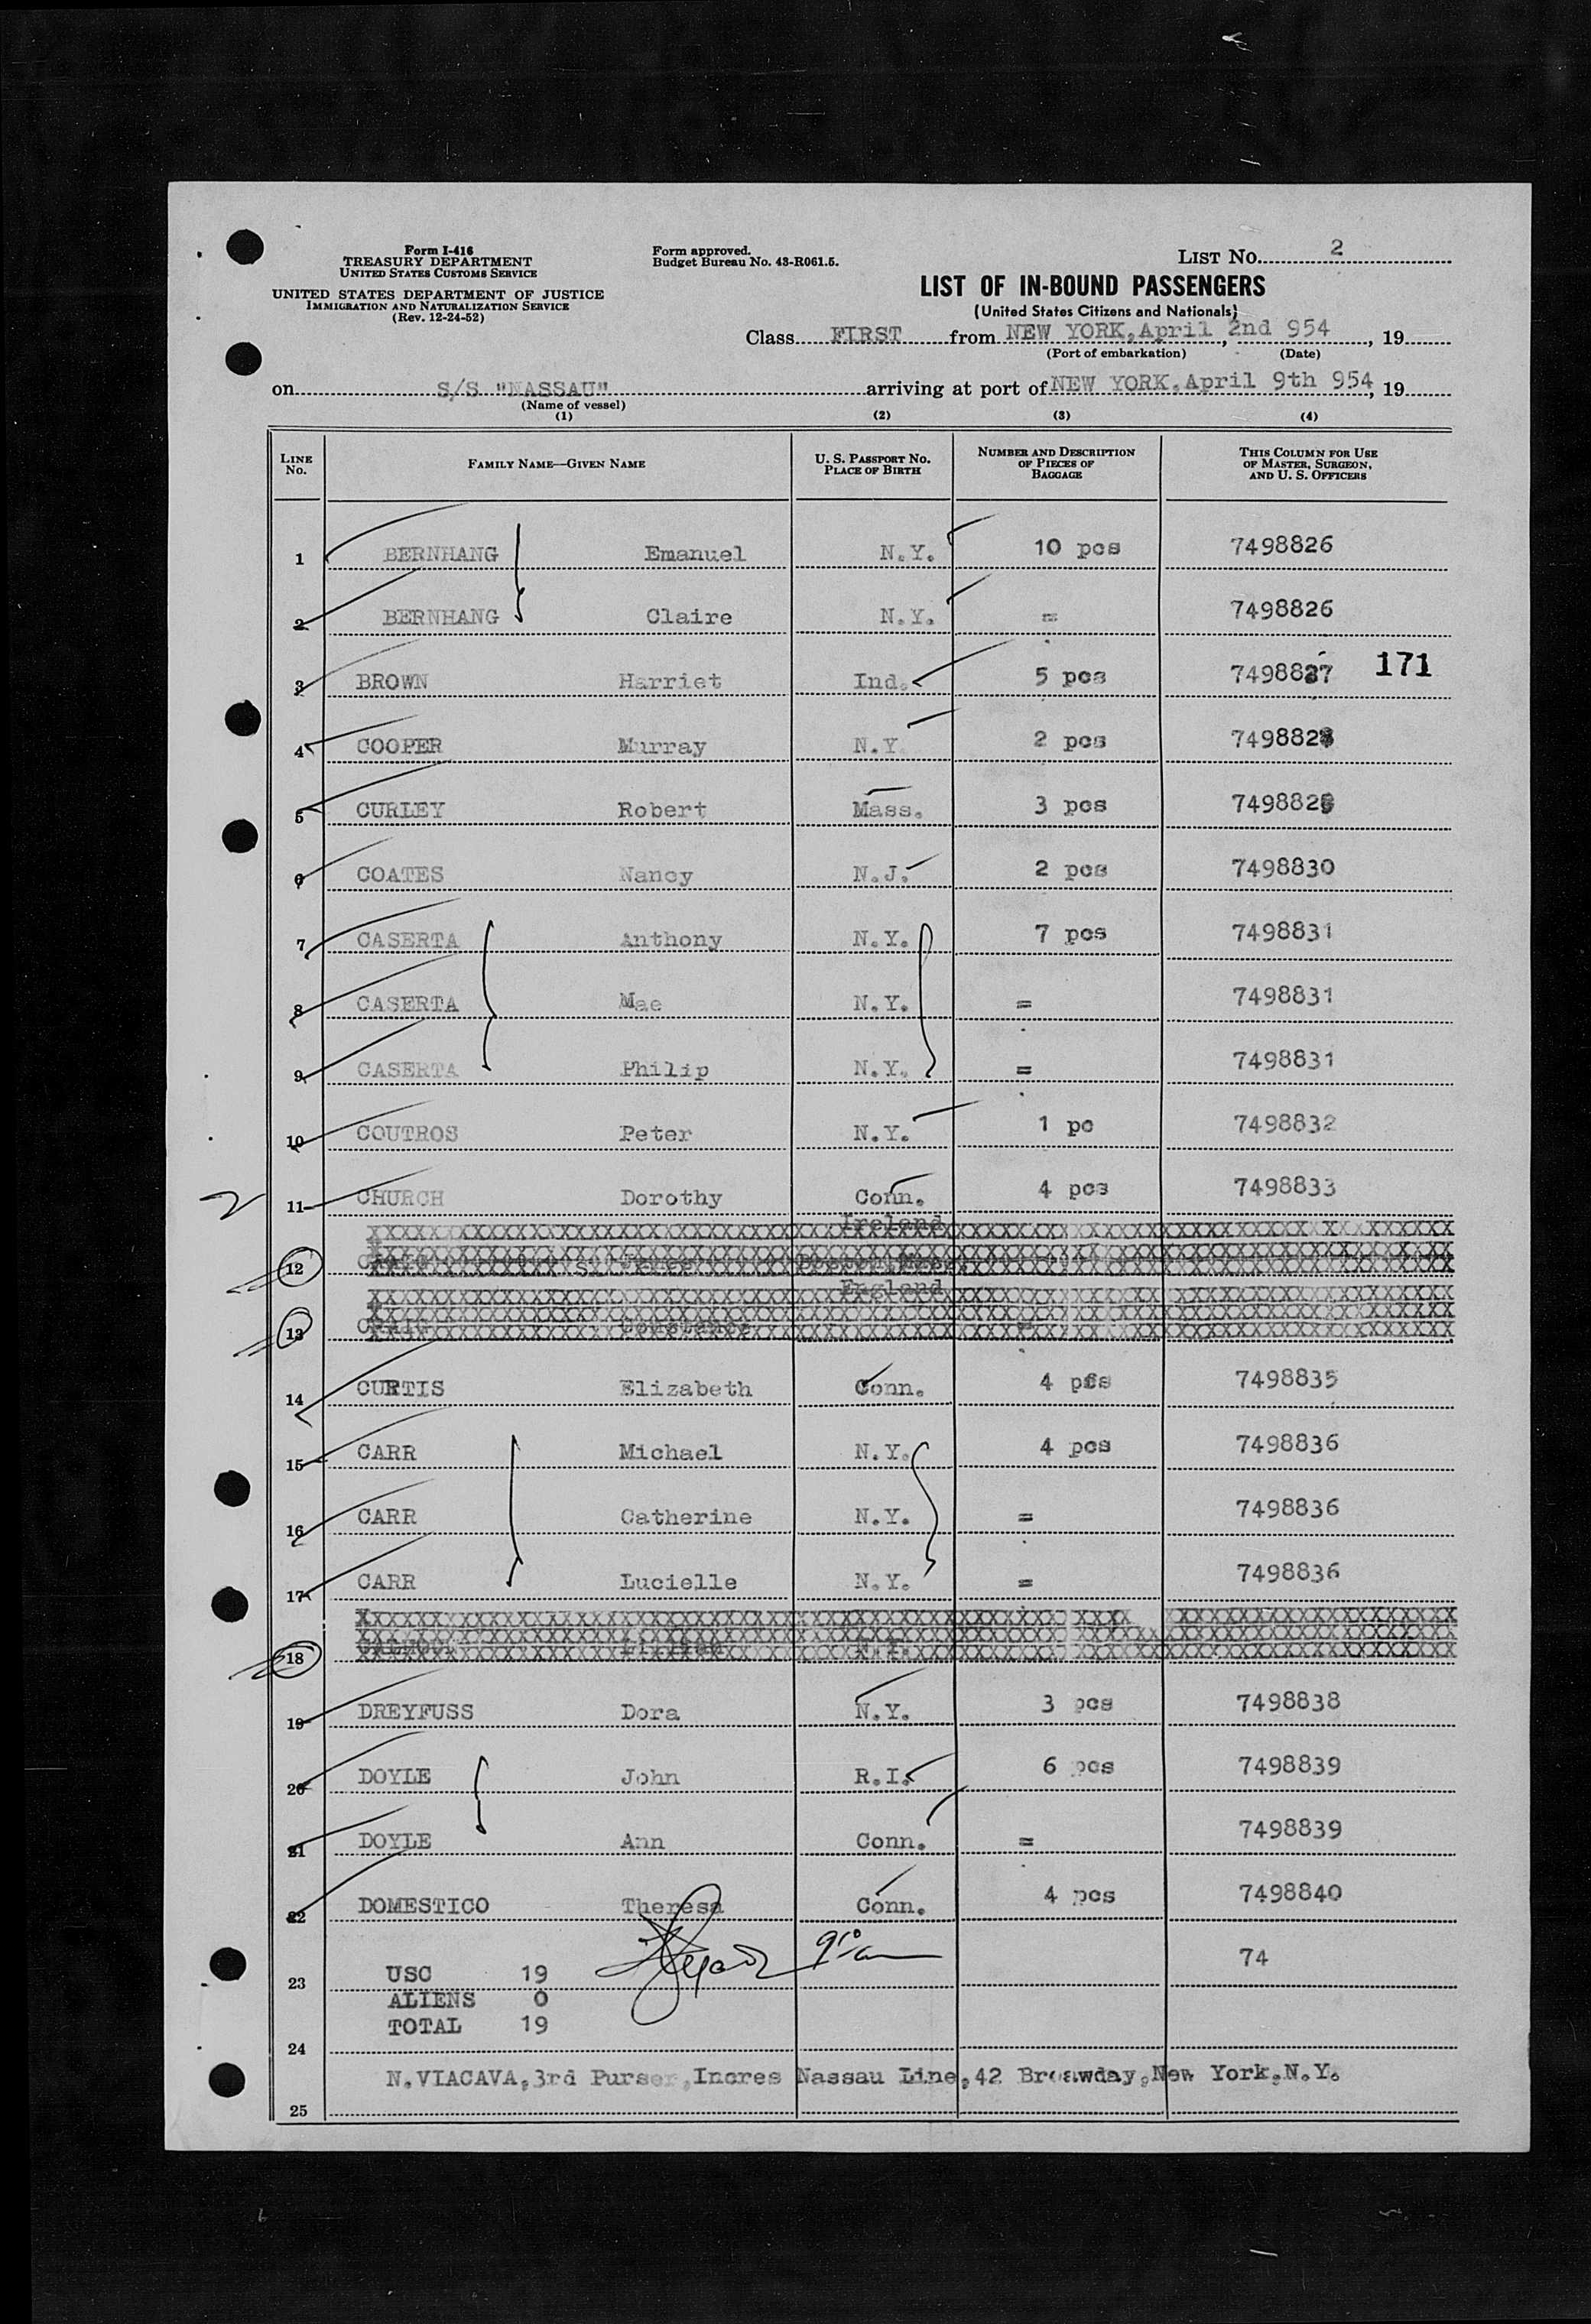 Form I-416
TREASURY DEPARTMENT
UNITED STATES CUSTOMS SERVICE
UNITED STATES DEPARTMENT OF JUSTICE
IMMIGRATION AND NATURALIZATION SERVICE
(Rev. 12-24-52)
Form approved.
Budget Bureau No. 43-R061.5.
LIST No. 2
LIST OF IN-BOUND PASSENGERS
(United States Citizens and Nationals)
Class FIRST from NEW YORK, April, 2nd 954, 19
(Port of embarkation) (Date)
on S/S "NASSAU" arriving at port of NEW YORK, April 9th 954, 19
(Name of vessel)
(1) (2) (3) (4)
LINE No. FAMILY NAME—GIVEN NAME U. S. PASSPORT No. PLACE OF BIRTH NUMBER AND DESCRIPTION OF PIECES OF BAGGAGE THIS COLUMN FOR USE OF MASTER, SURGEON, AND U. S. OFFICERS
1 BERNHANG Emanuel N.Y. 10 pcs 7498826
2 BERNHANG Claire N.Y. = 7498826
3 BROWN Harriet Ind. 5 pcs 7498827 171
4 COOPER Murray N.Y. 2 pcs 7498828
5 CURLEY Robert Mass. 3 pcs 7498829
6 COATES Nancy N.J. 2 pcs 7498830
7 CASERTA Anthony N.Y. 7 pcs 7498831
8 CASERTA Mae N.Y. = 7498831
9 CASERTA Philip N.Y. = 7498831
10 COUTROS Peter N.Y. 1 pc 7498832
2 11 CHURCH Dorothy Conn. 4 pcs 7498833
Ireland
12
England
13
14 CURTIS Elizabeth Conn. 4 pcs 7498835
15 CARR Michael N.Y. 4 pcs 7498836
16 CARR Catherine N.Y. = 7498836
17 CARR Lucielle N.Y. = 7498836
18
19 DREYFUSS Dora N.Y. 3 pcs 7498838
20 DOYLE John R.I. 6 pcs 7498839
21 DOYLE Ann Conn. = 7498839
22 DOMESTICO Theresa Conn. 4 pcs 7498840
23 USC 19 74
ALIENS 0
24 TOTAL 19
25 N.VIACAVA,3rd Purser,Incres Nassau Line,42 Broawday,New York.N.Y.